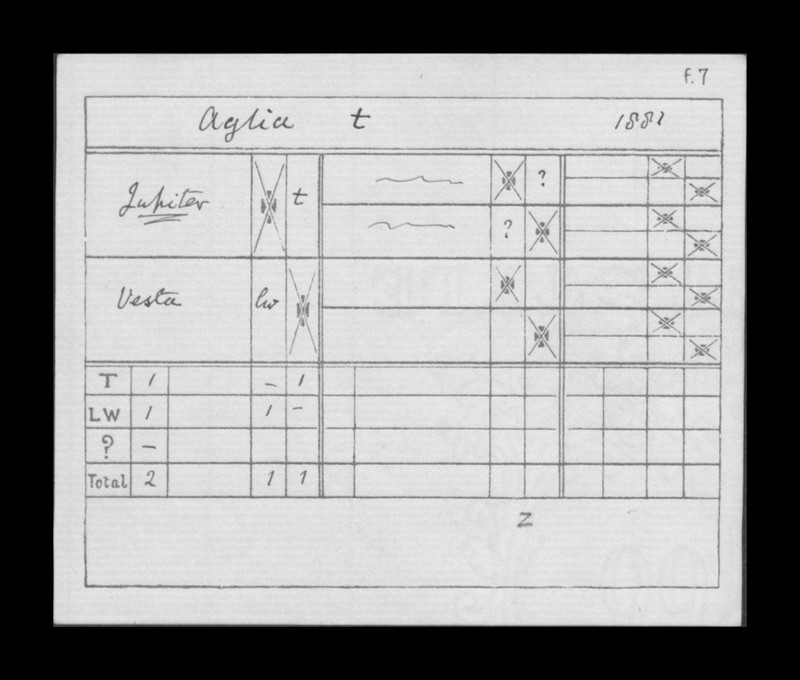 f.7
Aglia t 1881
Jupiter t ?
?
Vesta lw
T 1 – 1
LW 1 1 –
? –
Total 2 1 1
Z